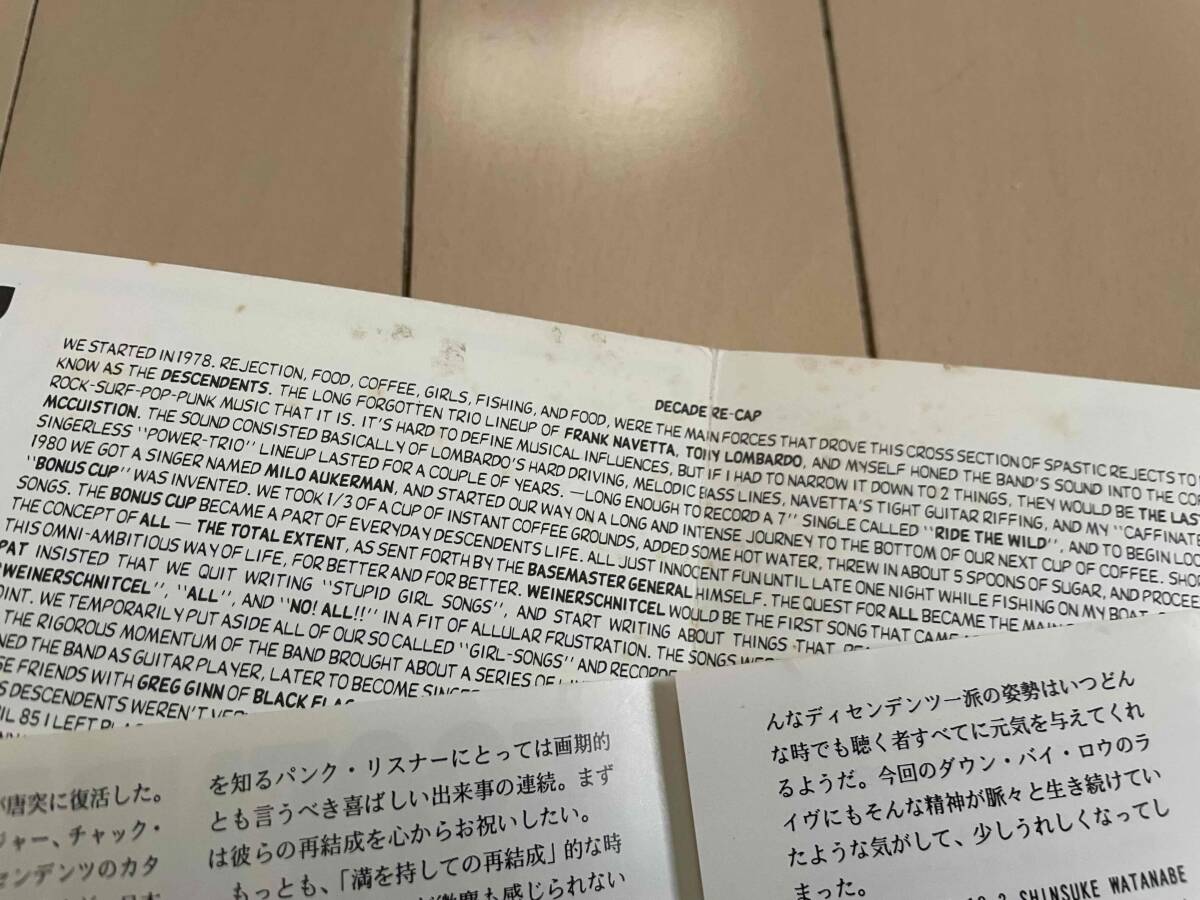 DECADE RE-CAP
WE STARTED IN 1978. REJECTION, FOOD, COFFEE, GIRLS, FISHING, AND FOOD, WERE THE MAIN FORCES THAT DROVE THIS CROSS SECTION OF SPASTIC REJECTS TO
KNOW AS THE DESCENDENTS. THE LONG FORGOTTEN TRIO LINEUP OF FRANK NAVETTA, TONY LOMBARDO, AND MYSELF HONED THE BAND'S SOUND INTO THE CO
ROCK-SURF-POP-PUNK MUSIC THAT IT IS. IT'S HARD TO DEFINE MUSICAL INFLUENCES, BUT IF I HAD TO NARROW IT DOWN TO 2 THINGS, THEY WOULD BE THE LAS
MCCUISTION. THE SOUND CONSISTED BASICALLY OF LOMBARDO'S HARD DRIVING, MELODIC BASS LINES, NAVETTA'S TIGHT GUITAR RIFFING, AND MY "CAFFINATE
SINGERLESS "POWER-TRIO" LINEUP LASTED FOR A COUPLE OF YEARS. —LONG ENOUGH TO RECORD A 7" SINGLE CALLED "RIDE THE WILD", AND TO BEGIN LOO
1980 WE GOT A SINGER NAMED MILO AUKERMAN, AND STARTED OUR WAY ON A LONG AND INTENSE JOURNEY TO THE BOTTOM OF OUR NEXT CUP OF COFFEE. SHO
"BONUS CUP" WAS INVENTED. WE TOOK 1/3 OF A CUP OF INSTANT COFFEE GROUNDS, ADDED SOME HOT WATER, THREW IN ABOUT 5 SPOONS OF SUGAR, AND PROCEE
SONGS. THE BONUS CUP BECAME A PART OF EVERYDAY DESCENDENTS LIFE. ALL JUST INNOCENT FUN UNTIL LATE ONE NIGHT WHILE FISHING ON MY BOAT
THE CONCEPT OF ALL — THE TOTAL EXTENT, AS SENT FORTH BY THE BASEMASTER GENERAL HIMSELF. THE QUEST FOR ALL BECAME THE MAIN
THIS OMNI-AMBITIOUS WAY OF LIFE, FOR BETTER AND FOR BETTER. WEINERSCHNITCEL WOULD BE THE FIRST SONG THAT CAME
PAT INSISTED THAT WE QUIT WRITING "STUPID GIRL SONGS", AND START WRITING ABOUT THINGS THAT
WEINERSCHNITCEL", "ALL", AND "NO! ALL!!" IN A FIT OF ALLULAR FRUSTRATION. THE SONGS
OINT. WE TEMPORARILY PUT ASIDE ALL OF OUR SO CALLED "GIRL-SONGS" AND RECORDE
THE RIGOROUS MOMENTUM OF THE BAND BROUGHT ABOUT A SERIES OF
NED THE BAND AS GUITAR PLAYER, LATER TO BECOME SINGE
SE FRIENDS WITH GREG GINN OF BLACK FLAG
S DESCENDENTS WEREN'T VE
IL 85 I LEFT
が唐突に復活した。
ジャー、チャック・
センデンツのカタ
を知るパンク・リスナーにとっては画期的
とも言うべき喜ばしい出来事の連続。まず
は彼らの再結成を心からお祝いしたい。
もっとも、「満を持しての再結成」的な時
も感じられない
んなディセンデンツ一派の姿勢はいつどん
な時でも聴く者すべてに元気を与えてくれ
るようだ。今回のダウン・バイ・ロウのラ
イヴにもそんな精神が脈々と生き続けてい
たような気がして、少しうれしくなってし
まった。
SHINSUKE WATANABE